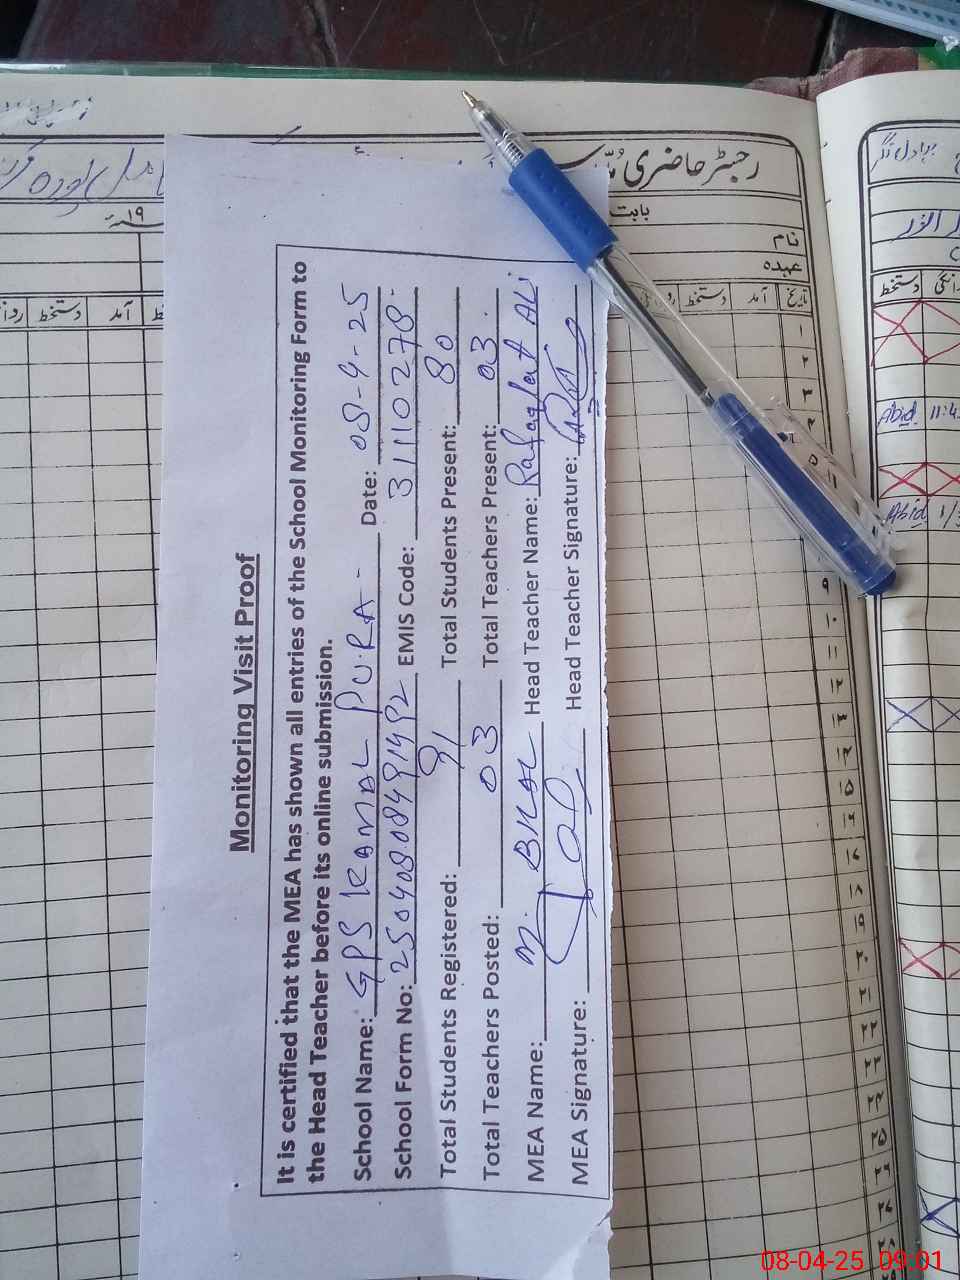 Monitoring Visit Proof
It is certified that the MEA has shown all entries of the School Monitoring Form to
the Head Teacher before its online submission.
School Name: GPS KAMAL PURA- Date: 08-4-25
School Form No: 25040808491492 EMIS Code: 31110278
Total Students Registered: 91 Total Students Present: 80
Total Teachers Posted: 03 Total Teachers Present: 03
MEA Name: M. BILAL Head Teacher Name: Rafaqat ALi
MEA Signature: Head Teacher Signature:
رجسٹر حاضری
بابت
۱۹
نام
عہدہ
تاریخ آمد دستخط
آمد دستخط
دستخط
۱
۲
۳
۹
۱۰
۱۱
۱۲
۱۳
۱۴
۱۵
۱۶
۱۷
۱۸
۱۹
۲۰
۲۱
۲۲
۲۳
۲۴
۲۵
۲۶
۲۷
۲۸
Abid 11:4
Abid 1/3
08-04-25 09:01